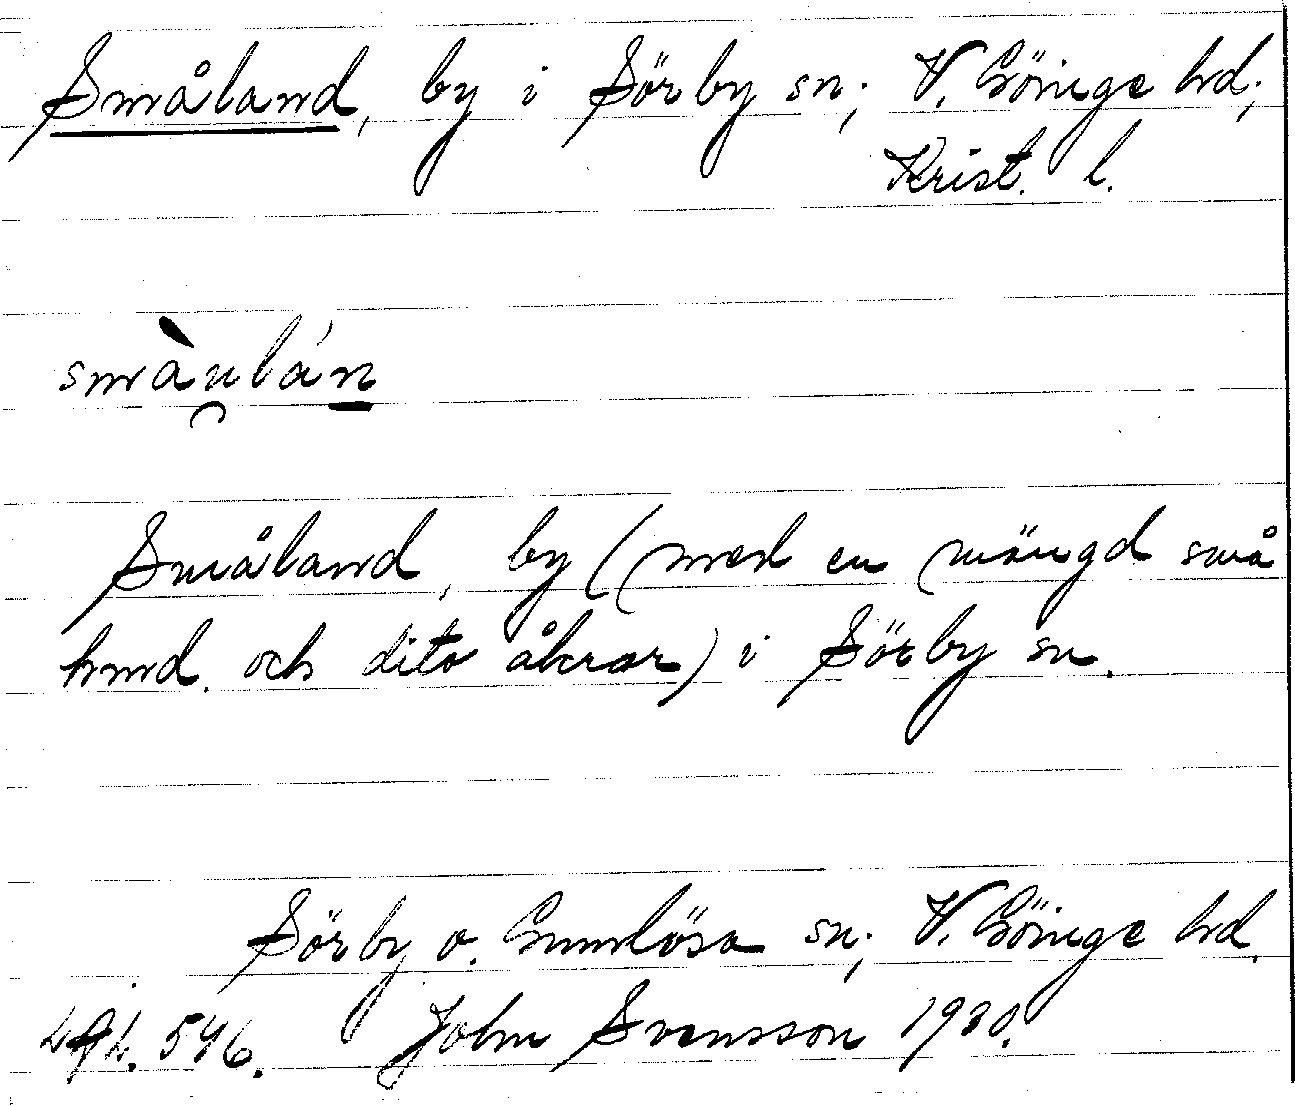 Småland, by i Sörby sn; V. Göinge hd;
Krist. l.
smàu̯lán̲
Småland, by (med en mängd små
hmd. och dito åkrar) i Sörby sn.
Sörby o. Gumlösa sn; V. Göinge hd.
546. John Svensson 1930.